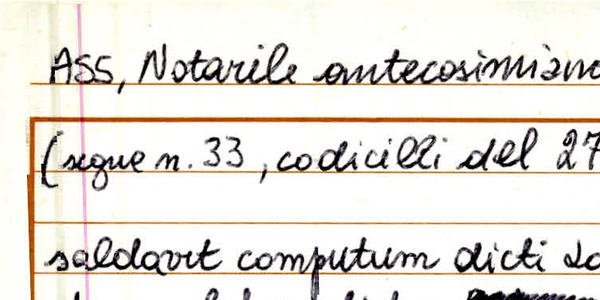 ASS, Notarile antecosimiano
(segue n. 33, codicilli del 27
saldavit computum dicti